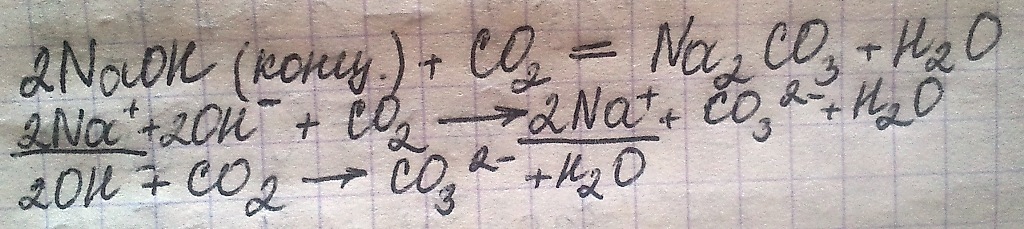 2NaOH (конц.) + CO₂ = Na₂CO₃ + H₂O
2Na⁺ + 2OH⁻ + CO₂ → 2Na⁺ + CO₃²⁻ + H₂O
2OH⁻ + CO₂ → CO₃²⁻ + H₂O